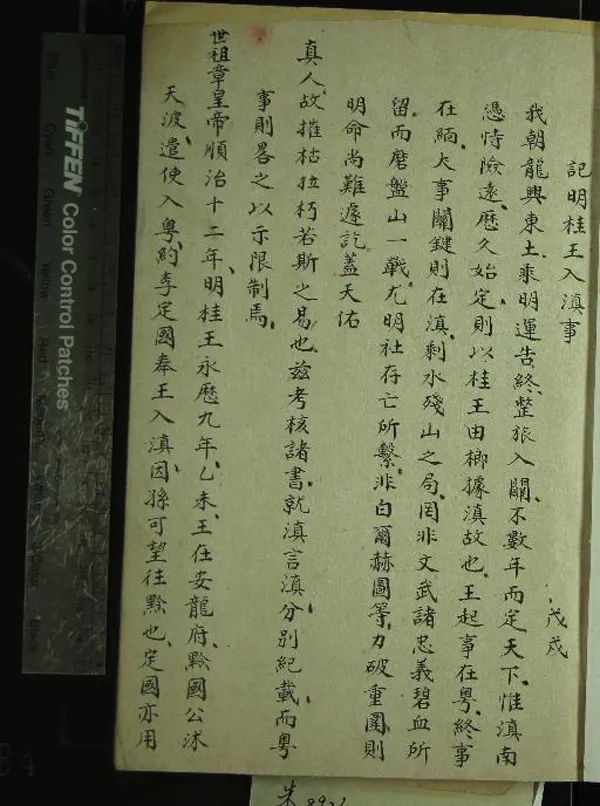 記明桂王入滇事
戊戌
我朝龍興東土乘明運告終整旅入關不數年而定天下惟滇南
憑恃險遠歷久始定則以桂王由榔據滇故也王起事在粵終事
在緬大事關鍵則在滇剩水殘山之局罔非文武諸忠義碧血所
留而磨盤山一戰尤明社存亡所繫非白爾赫圖等力破重圍則
明命尚難遽訖蓋天佑
真人故摧枯拉朽若斯之易也茲考核諸書就滇言滇分別紀載而粵
事則畧之以示限制焉
世祖章皇帝順治十二年明桂王永歷九年乙未王在安龍府黔國公沐
天波遣使入粵約李定國奉王入滇因孫可望往黔也定國亦用
TIFFEN Color Control Patches
Blue
Cyan
Green
Yellow
Red
Black